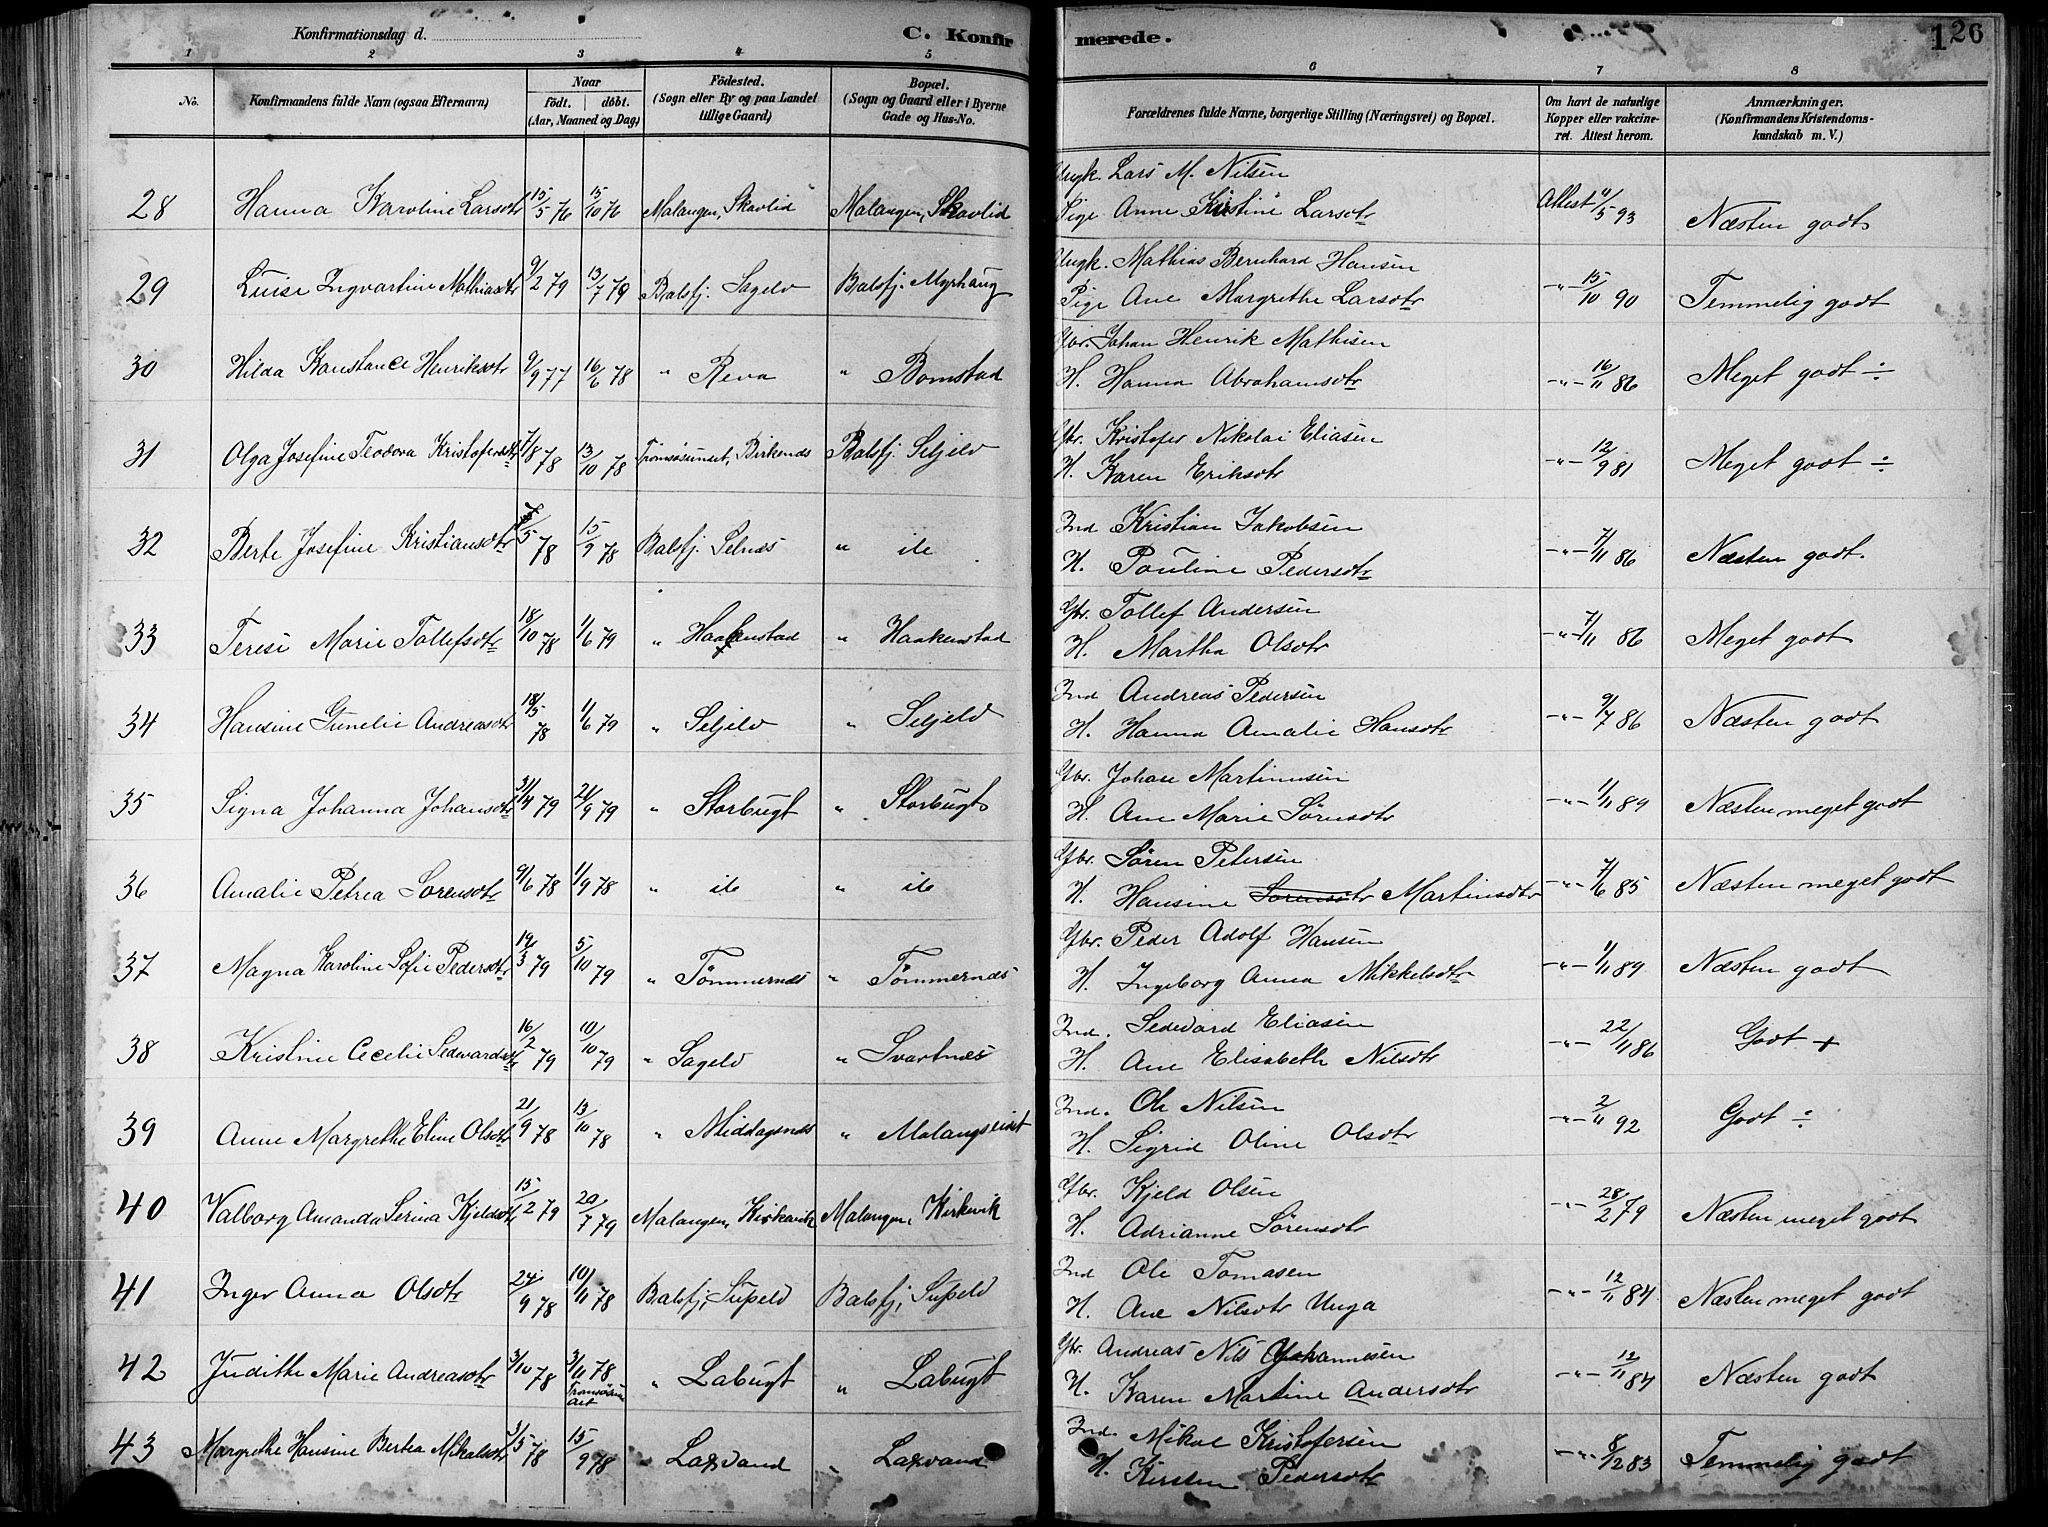 Konfirmationsdag d. C. Konfirmerede. 126
1 2 3 4 5 6 7 8
No. Konfirmandens fulde Navn (ogsaa Efternavn) Naar født. døbt. (Aar, Maaned og Dag) Fødested. (Sogn eller By og paa Landet tillige Gaard) Bopæl. (Sogn og Gaard eller i Byerne Gade og Hus-No. Forældrenes fulde Navne, borgerlige Stilling (Næringsvei) og Bopæl. Om havt de naturlige Kopper eller vakcineret. Attest herom. Anmærkninger. (Konfirmandens Kristendomskundskab m. V.)
Ungk. Lars M. Nilsen
28 Hanna Karoline Larsdtr 15/5 76 15/10 76 Malangen, Skavlid Malangen, Skavlid Pige Anne Kirstine Larsdtr Attest 4/5 93 Næsten godt
Ungk. Mathias Bernhard Hansen
29 Luise Ingvartine Mathiasdtr 9/2 79 13/7 79 Balsfj. Sagelv Balsfj. Myrhaug Pige Ane Margrethe Larsdtr -"- 15/10 90 Temmelig godt
Gbr. Johan Henrik Mathisen
30 Hilda Konstance Henriksdtr 9/9 77 16/6 78 " Reva " Bomstad H. Hanna Abrahamsdtr -"- 16/11 86 Meget godt ÷
Gbr. Kristofer Nikolai Eliasen
31 Olga Josefine Teodora Kristofersdtr 7/8 78 13/10 78 Tromsøsundet, Birkenes Balsfj. Seljelv H. Karen Eriksdtr -"- 12/9 81 Meget godt ÷
Ind Kristian Jakobsen
32 Berte Josefine Kristiansdtr /5 78 15/9 78 Balsfj. Selnæs " ib H. Pouline Pedersdtr -"- 7/11 86 Næsten godt.
Gbr. Tollef Andersen
33 Teresi Marie Tollefsdtr 18/10 78 1/6 79 " Haakenstad " Haakenstad H. Martha Olsdtr -"- 7/11 86 Meget godt
Ind Andreas Pedersen
34 Hansine Gunelie Andreasdtr 18/5 78 1/6 79 " Seljelv " Seljelv H. Hanna Amalie Hansdtr -"- 9/7 86 Næsten godt
Gbr. Johan Martinusen
35 Signa Johanna Johansdtr 79 21/9 79 " Storbugt " Storbugt H. Ane Marie Sørensdtr -"- 1/11 89 Næsten meget godt
Gbr. Søren Petersen
36 Amalie Petrea Sørensdtr 9/6 78 1/9 78 " ib " ib H. Hansine Sørensdtr Martinsdtr -"- 7/6 85 Næsten meget godt
Gbr. Peder Adolf Hansen
37 Magna Karoline Sofie Pedersdtr 19/3 79 5/10 79 " Tømmernæs " Tømmernæs H. Ingeborg Anna Mikkelsdtr -"- 1/11 89 Næsten godt
Ind. Sedevard Eliasen
38 Kristine Cecelie Sedevardsdtr 16/2 79 10/10 79 " Sagelv " Svartnæs H. Ane Elisabeth Nilsdtr -"- 22/11 86 Godt +
Ind. Ole Nilsen
39 Anne Margrethe Eline Olsdtr 21/9 78 13/10 78 " Middagsnæs " Malangseidet H. Sigrid Oline Olsdtr -"- 2/11 92 Godt ÷
Gbr. Kjeld Olsen
40 Valborg Amanda Serina Kjeldsdtr 15/2 79 20/7 79 Malangen, Kirkevik Malangen, Kirkevik H. Adrianne Sørensdtr -"- 28/2 79 Næsten meget godt
Ind Ole Tomasen
41 Inger Anna Olsdtr 24/9 78 10/11 78 Balsfj, Supelv Balsfj, Supelv H. Ane Nilsdtr Unga -"- 12/11 84 Næsten meget godt
Gbr. Andreas Nils Johannesen
42 Judithe Marie Andreasdtr 3/10 78 3/11 78 Tromsøsundet " Labugt " Labugt H. Karen Martine Andersdtr -"- 12/11 84 Næsten godt
Ind. Mikal Kristofersen
43 Margrethe Hansine Bertea Mikalsdtr 3/5 78 15/9 78 " Laxvand " Laxvand H. Kirsten Pedersdtr -"- 8/2 83 Temmelig godt